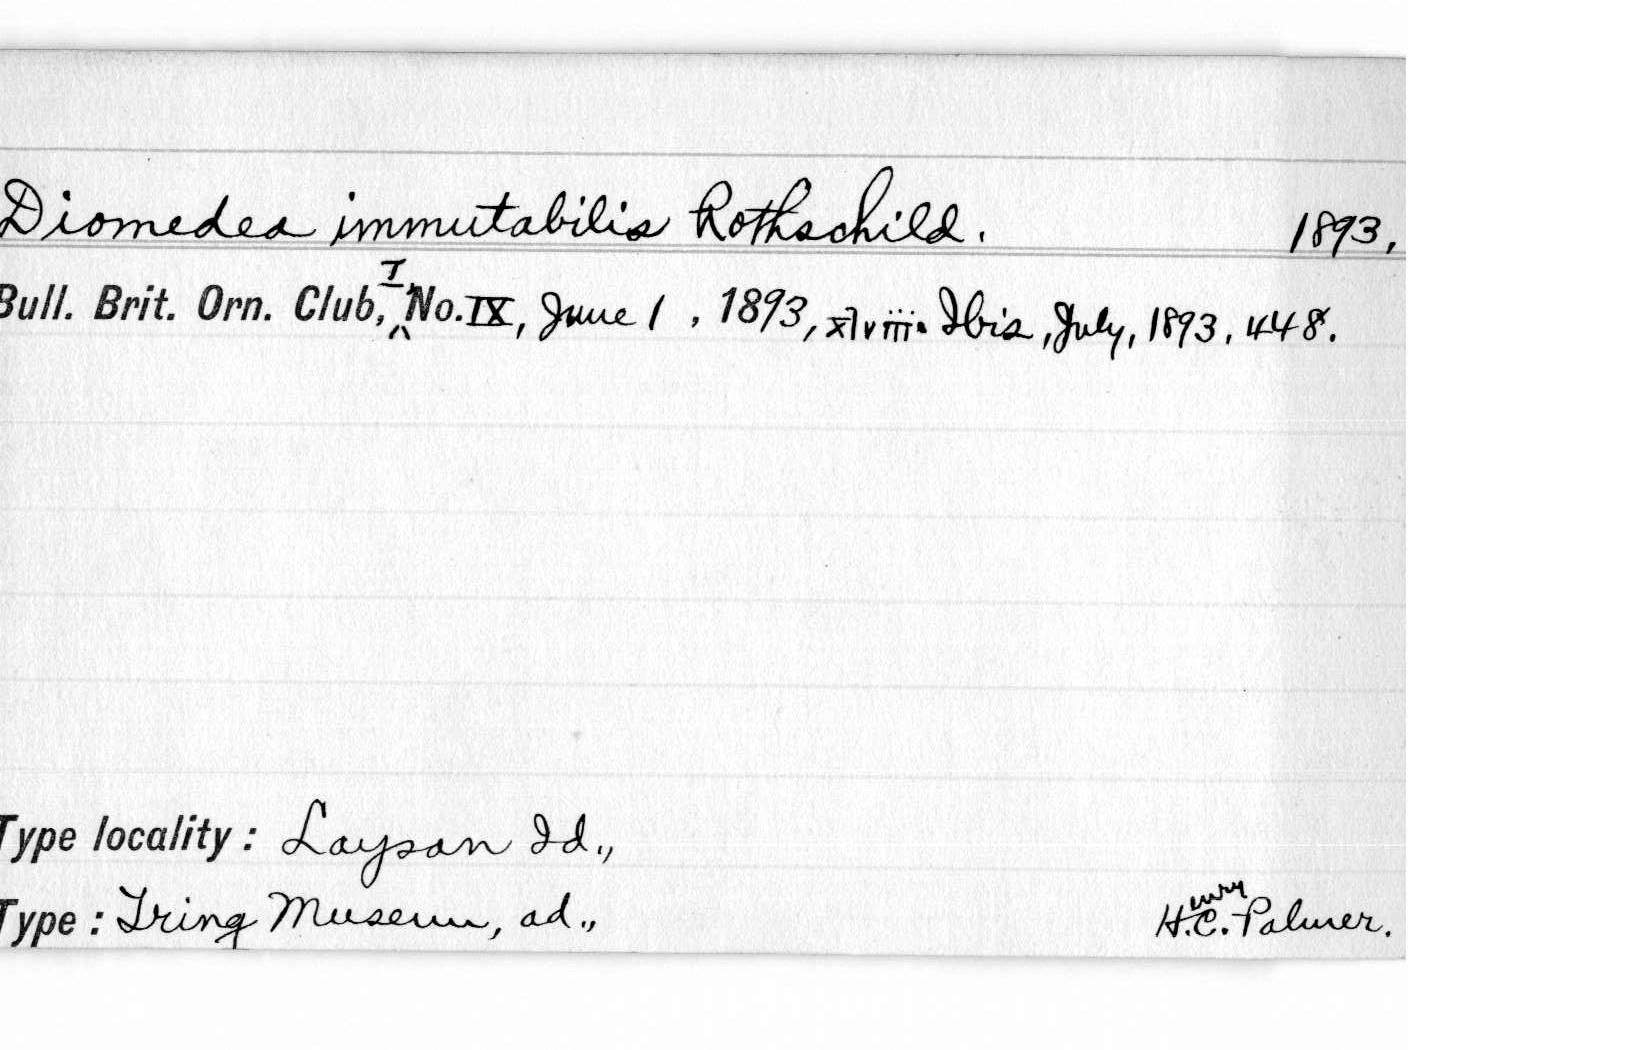 Diomedea immutabilis Rothschild. 1893,
Bull. Brit. Orn. Club, I, No. IX, June 1, 1893, xlviii. Ibis, July, 1893, 448.
Type locality: Laysan Id.,
enry
Type: Tring Museum, ad., H.C. Palmer.